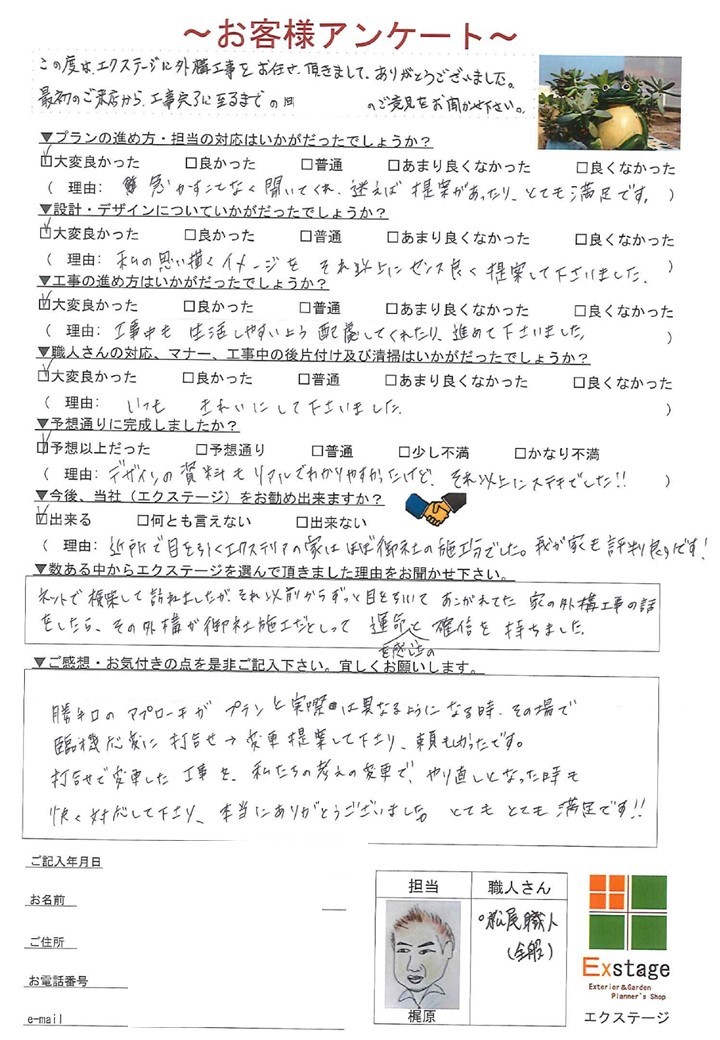 ～お客様アンケート～
この度は、エクステージに外構工事をお任せ頂きまして、ありがとうございました。
最初のご来店から、工事完了に至るまでの
のご意見をお聞かせ下さい。
▼プランの進め方・担当の対応はいかがだったでしょうか？
☑大変良かった □良かった □普通 □あまり良くなかった □良くなかった
（ 理由： 急かすことなく聞いてくれ、迷えば提案があったり、とても満足です。 ）
▼設計・デザインについていかがだったでしょうか？
☑大変良かった □良かった □普通 □あまり良くなかった □良くなかった
（ 理由： 私の思い描くイメージを それ以上にセンス良く提案して下さいました。 ）
▼工事の進め方はいかがだったでしょうか？
☑大変良かった □良かった □普通 □あまり良くなかった □良くなかった
（ 理由： 工事中も 生活しやすいよう配慮してくれたり、進めて下さいました。 ）
▼職人さんの対応、マナー、工事中の後片付け及び清掃はいかがだったでしょうか？
☑大変良かった □良かった □普通 □あまり良くなかった □良くなかった
（ 理由： いつも きれいにして下さいました。 ）
▼予想通りに完成しましたか？
☑予想以上だった □予想通り □普通 □少し不満 □かなり不満
（ 理由： デザインの資料もリアルでわかりやすかったけど、それ以上にステキでした!! ）
▼今後、当社（エクステージ）をお勧め出来ますか？
☑出来る □何とも言えない □出来ない
（ 理由： 近所で目を引くエクステリアの家はほぼ御社の施工でした。我が家も評判良いです！
▼数ある中からエクステージを選んで頂きました理由をお聞かせ下さい。
ネットで検索して訪ねましたが、それ以前からずっと目を引いて あこがれてた 家の外構工事の話
をしたら、その外構が御社施工だとしって 運命を感じの確信を 持ちました。
▼ご感想・お気付きの点を是非ご記入下さい。宜しくお願いします。
勝手口のアプローチが プランと実際は異なるようになる時、その場で
臨機応変に 打合せ→変更提案して下さり、頼もしかったです。
打合せで変更した 工事を、私たちの考えの変更で、やり直しとなった時も
快く対応して下さり、本当にありがとうございました。とても とても 満足です!!
ご記入年月日
お名前
ご住所
お電話番号
e-mail
担当 職人さん
松尾職人
梶原
Exstage
Exterior＆Garden
Planner's Shop
エクステージ